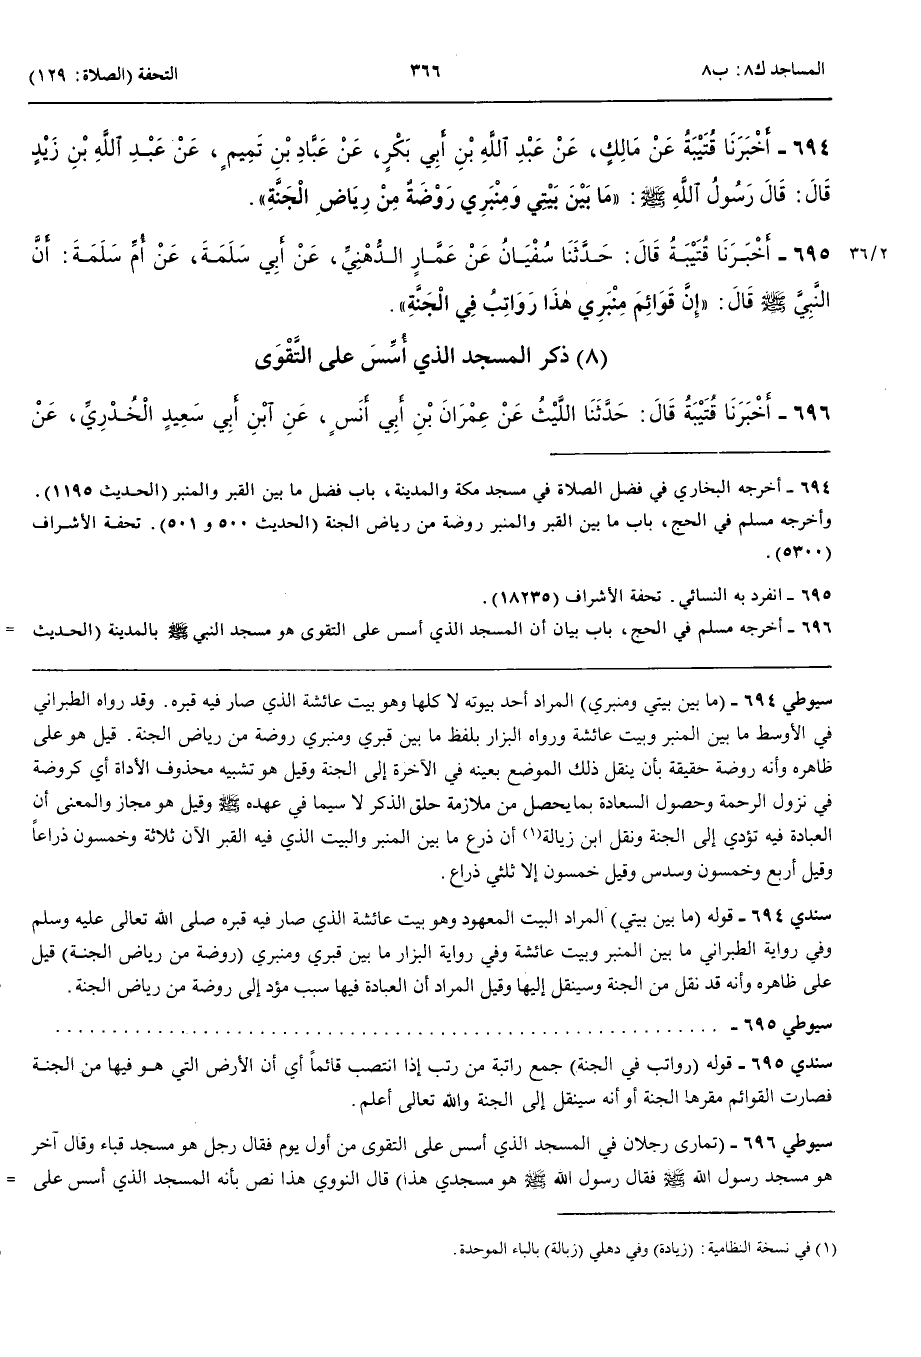 المساجد ك٨: ب٨ ٣٦٦ التحفة (الصلاة: ١٢٩)
٦٩٤ - أَخْبَرَنَا قُتَيْبَةُ عَنْ مَالِكٍ، عَنْ عَبْدِ ٱللَّهِ بْنِ أَبِي بَكْرٍ، عَنْ عَبَّادِ بْنِ تَمِيمٍ، عَنْ عَبْدِ ٱللَّهِ بْنِ زَيْدٍ
قَالَ: قَالَ رَسُولُ ٱللَّهِ ﷺ: «مَا بَيْنَ بَيْتِي وَمِنْبَرِي رَوْضَةٌ مِنْ رِيَاضِ الْجَنَّةِ».
٣٦/٢ ٦٩٥ - أَخْبَرَنَا قُتَيْبَةُ قَالَ: حَدَّثَنَا سُفْيَانُ عَنْ عَمَّارٍ الدُّهْنِيِّ، عَنْ أَبِي سَلَمَةَ، عَنْ أُمِّ سَلَمَةَ: أَنَّ
النَّبِيَّ ﷺ قَالَ: «إِنَّ قَوَائِمَ مِنْبَرِي هٰذَا رَوَاتِبُ فِي الْجَنَّةِ».
(٨) ذكر المسجد الذي أُسِّسَ على التَّقْوَى
٦٩٦ - أَخْبَرَنَا قُتَيْبَةُ قَالَ: حَدَّثَنَا اللَّيْثُ عَنْ عِمْرَانَ بْنِ أَبِي أَنَسٍ، عَنِ ٱبْنِ أَبِي سَعِيدٍ الْخُدْرِيِّ، عَنْ
٦٩٤ - أخرجه البخاري في فضل الصلاة في مسجد مكة والمدينة، باب فضل ما بين القبر والمنبر (الحديث ١١٩٥).
وأخرجه مسلم في الحج، باب ما بين القبر والمنبر روضة من رياض الجنة (الحديث ٥٠٠ و ٥٠١). تحفة الأشراف
(٥٣٠٠).
٦٩٥ - انفرد به النسائي. تحفة الأشراف (١٨٢٣٥).
٦٩٦ - أخرجه مسلم في الحج، باب بيان أن المسجد الذي أسس على التقوى هو مسجد النبي ﷺ بالمدينة (الحديث =
سيوطي ٦٩٤ - (ما بين بيتي ومنبري) المراد أحد بيوته لا كلها وهو بيت عائشة الذي صار فيه قبره. وقد رواه الطبراني
في الأوسط ما بين المنبر وبيت عائشة ورواه البزار بلفظ ما بين قبري ومنبري روضة من رياض الجنة. قيل هو على
ظاهره وأنه روضة حقيقة بأن ينقل ذلك الموضع بعينه في الآخرة إلى الجنة وقيل هو تشبيه محذوف الأداة أي كروضة
في نزول الرحمة وحصول السعادة بما يحصل من ملازمة حلق الذكر لا سيما في عهده ﷺ وقيل هو مجاز والمعنى أن
العبادة فيه تؤدي إلى الجنة ونقل ابن زبالة(١) أن ذرع ما بين المنبر والبيت الذي فيه القبر الآن ثلاثة وخمسون ذراعاً
وقيل أربع وخمسون وسدس وقيل خمسون إلا ثلثي ذراع.
سندي ٦٩٤ - قوله (ما بين بيتي) المراد البيت المعهود وهو بيت عائشة الذي صار فيه قبره صلى الله تعالى عليه وسلم
وفي رواية الطبراني ما بين المنبر وبيت عائشة وفي رواية البزار ما بين قبري ومنبري (روضة من رياض الجنة) قيل
على ظاهره وأنه قد نقل من الجنة وسينقل إليها وقيل المراد أن العبادة فيها سبب مؤد إلى روضة من رياض الجنة.
سيوطي ٦٩٥ - . . . . . . . . . . . . . . . . . . . . . . . . . . . . . .
سندي ٦٩٥ - قوله (رواتب في الجنة) جمع راتبة من رتب إذا انتصب قائماً أي أن الأرض التي هو فيها من الجنة
فصارت القوائم مقرها الجنة أو أنه سينقل إلى الجنة والله تعالى أعلم.
سيوطي ٦٩٦ - (تمارى رجلان في المسجد الذي أسس على التقوى من أول يوم فقال رجل هو مسجد قباء وقال آخر
هو مسجد رسول الله ﷺ فقال رسول الله ﷺ هو مسجدي هذا) قال النووي هذا نص بأنه المسجد الذي أسس على =
(١) في نسخة النظامية: (زيادة) وفي دهلي (زبالة) بالباء الموحدة.